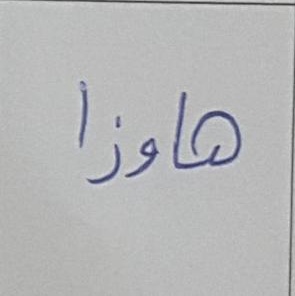 هاوزا